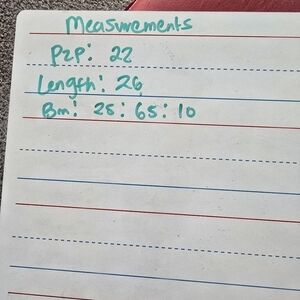 Measurements
P2P: 22
Length: 26
Bm: 25:65:10